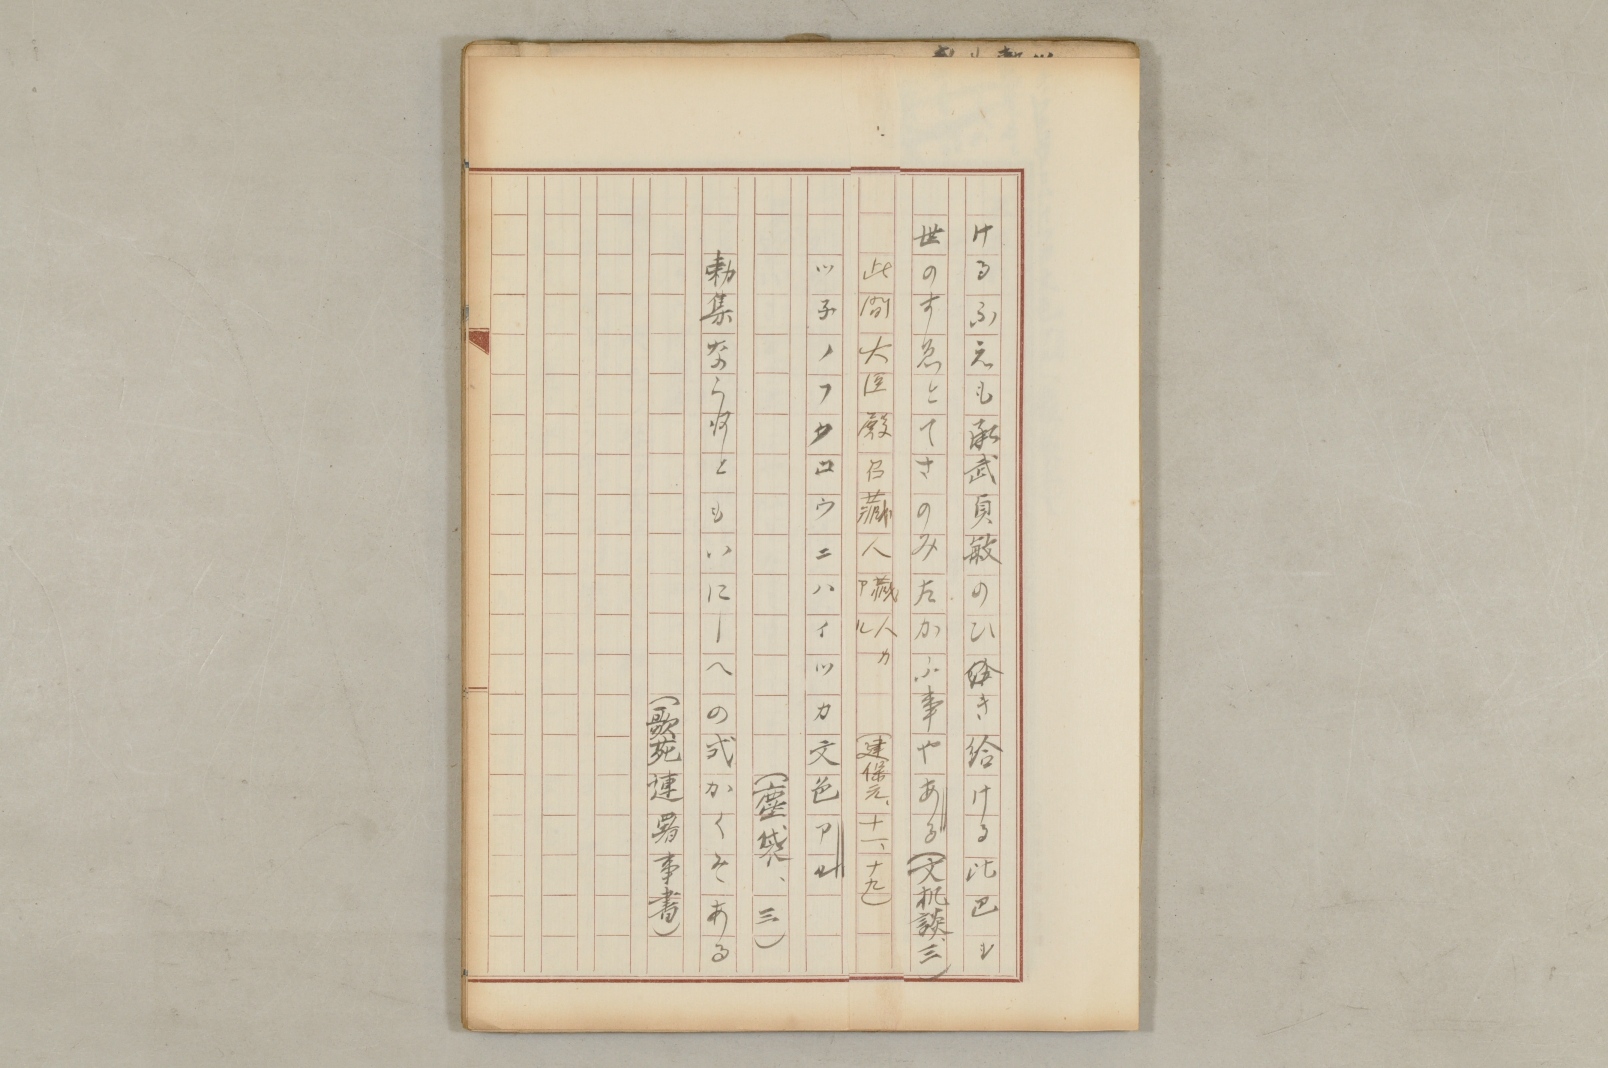 けるふえも承武貞敏のひ給き給ける比巴も
世のすゑとてさのみたかふ事やある(文机談、三)
此間大臣殿召蔵人
蔵人カ
アル
(建保元、十一、十九)
ツ子ノフクロウニハイツカ文色アル
(塵袋、三)
勅集ならすともいにしへの式かくそある
(歌苑連署事書)